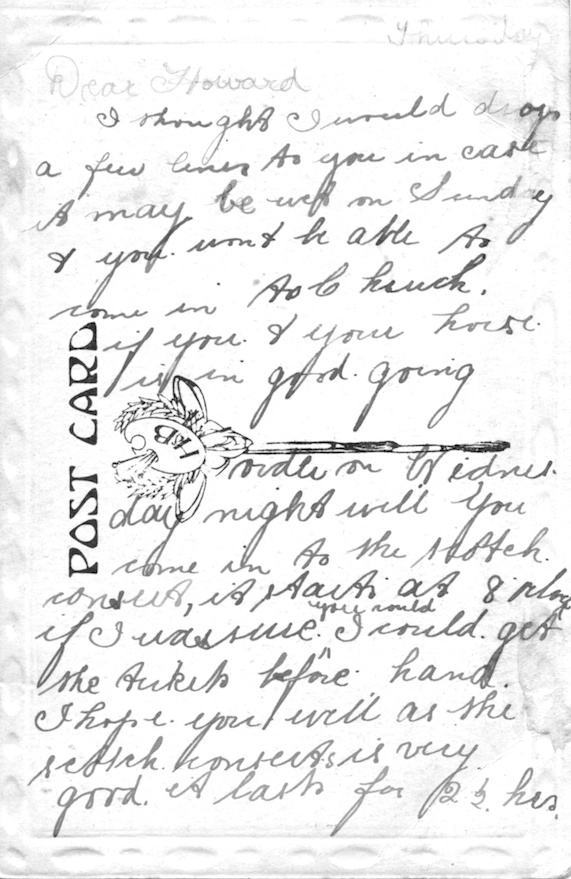 Thursday
Dear Howard
I thought I would drop
a few lines to you in case
it may be wet on Sunday
& you wont be able to
come in to Church.
if you & your horse
is in good going
order on Wednes
day night will you
come in to the scotch
consert, it starts at 8 oclock
if I was sure you would I could get
the tickets before hand.
I hope you will as the
scotch conserts is very
good. it lasts for 2½ hrs.
POST CARD